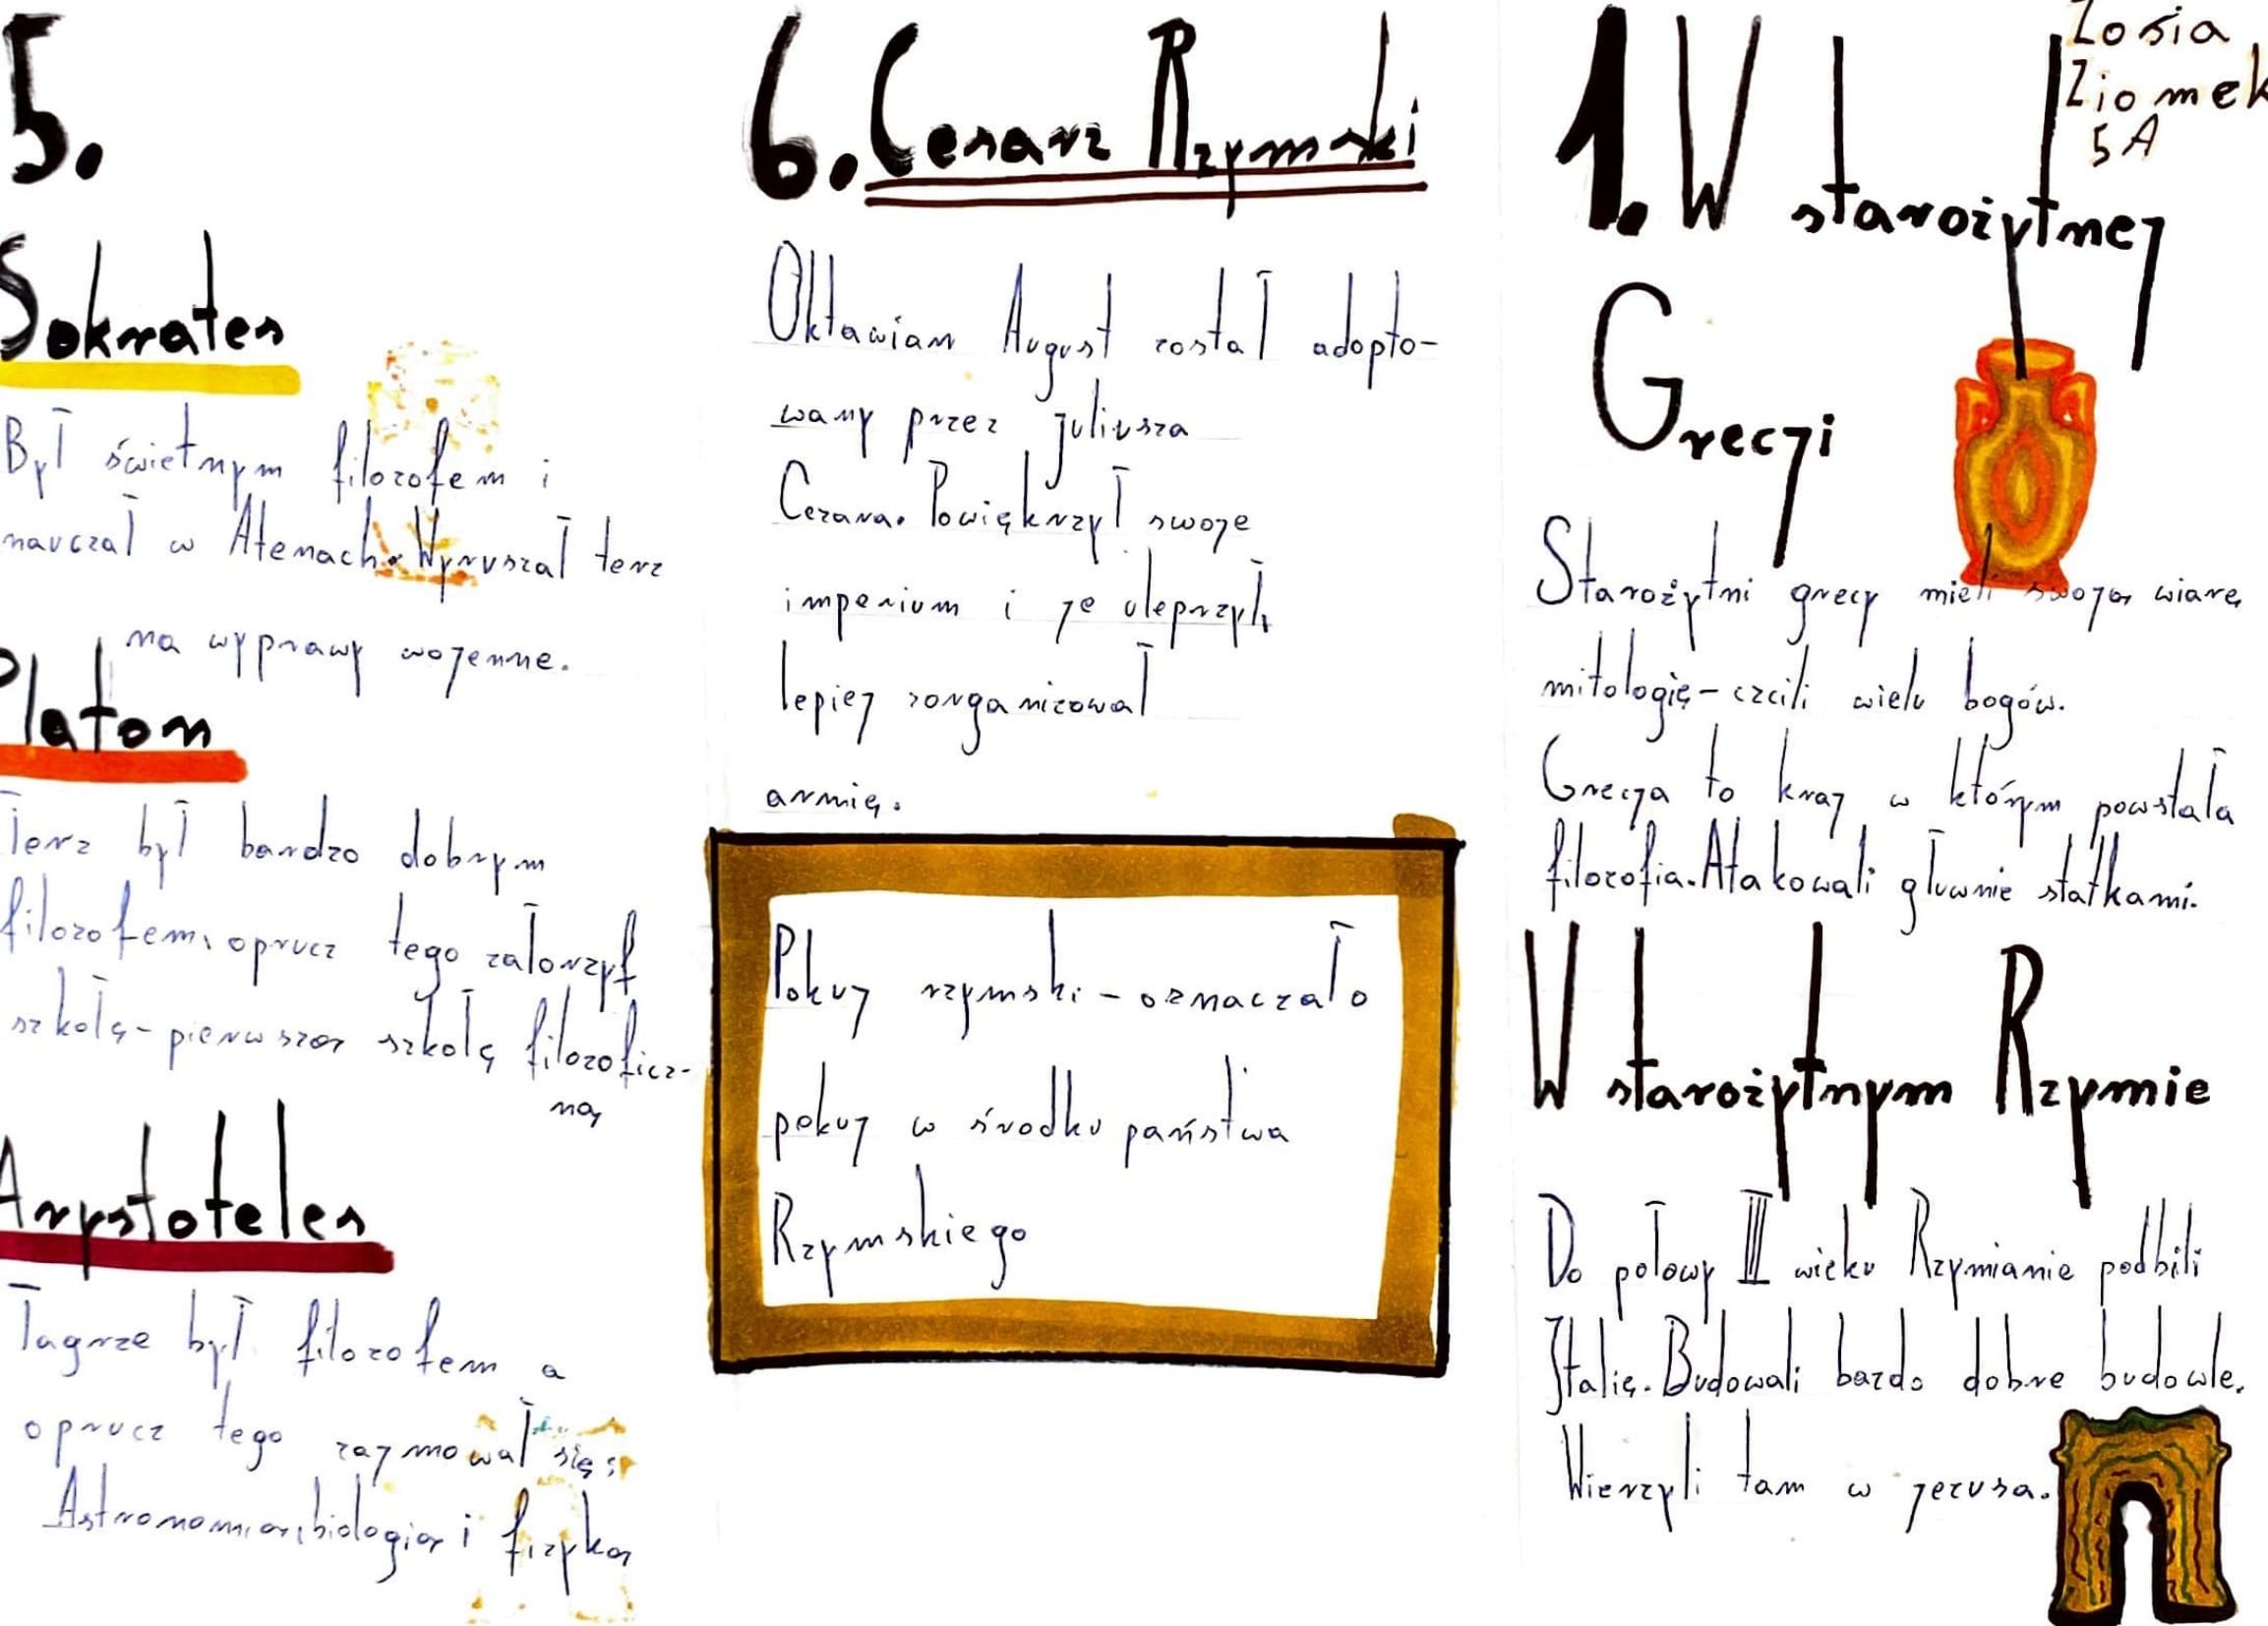 5.
Sokrates
Był świetnym filozofem i
nauczał w Atenach. Wyruszał terz
na wyprawy wojenne.
Platon
Terz był bardzo dobrym
filozofem, oprucz tego załorzył
szkołę - pierwszą szkołę filozoficz-
ną
Arystoteles
Tagrze był filozofem a
oprucz tego zajmował się:
Astronomią, biologią i fizyką
6. Cesarz Rzymski
Oktawian August został adopto-
wany przez juliusza
Cezara. Powiększył swoje
imperium i je uleprzył,
lepiej zorganizował
armię.
Pokuj rzymski - oznaczało
pokuj w środku państwa
Rzymskiego
Zosia
Ziomek
5A
1. W starożytnej
Grecji
Starożytni grecy mieli swoją wiarę
mitologię - czcili wielu bogów.
Grecja to kraj w którym powstała
filozofia. Atakowali głuwnie statkami.
W starożytnym Rzymie
Do połowy III wieku Rzymianie podbili
Italię. Budowali bazdo dobre budowle.
Wierzyli tam w jezusa.